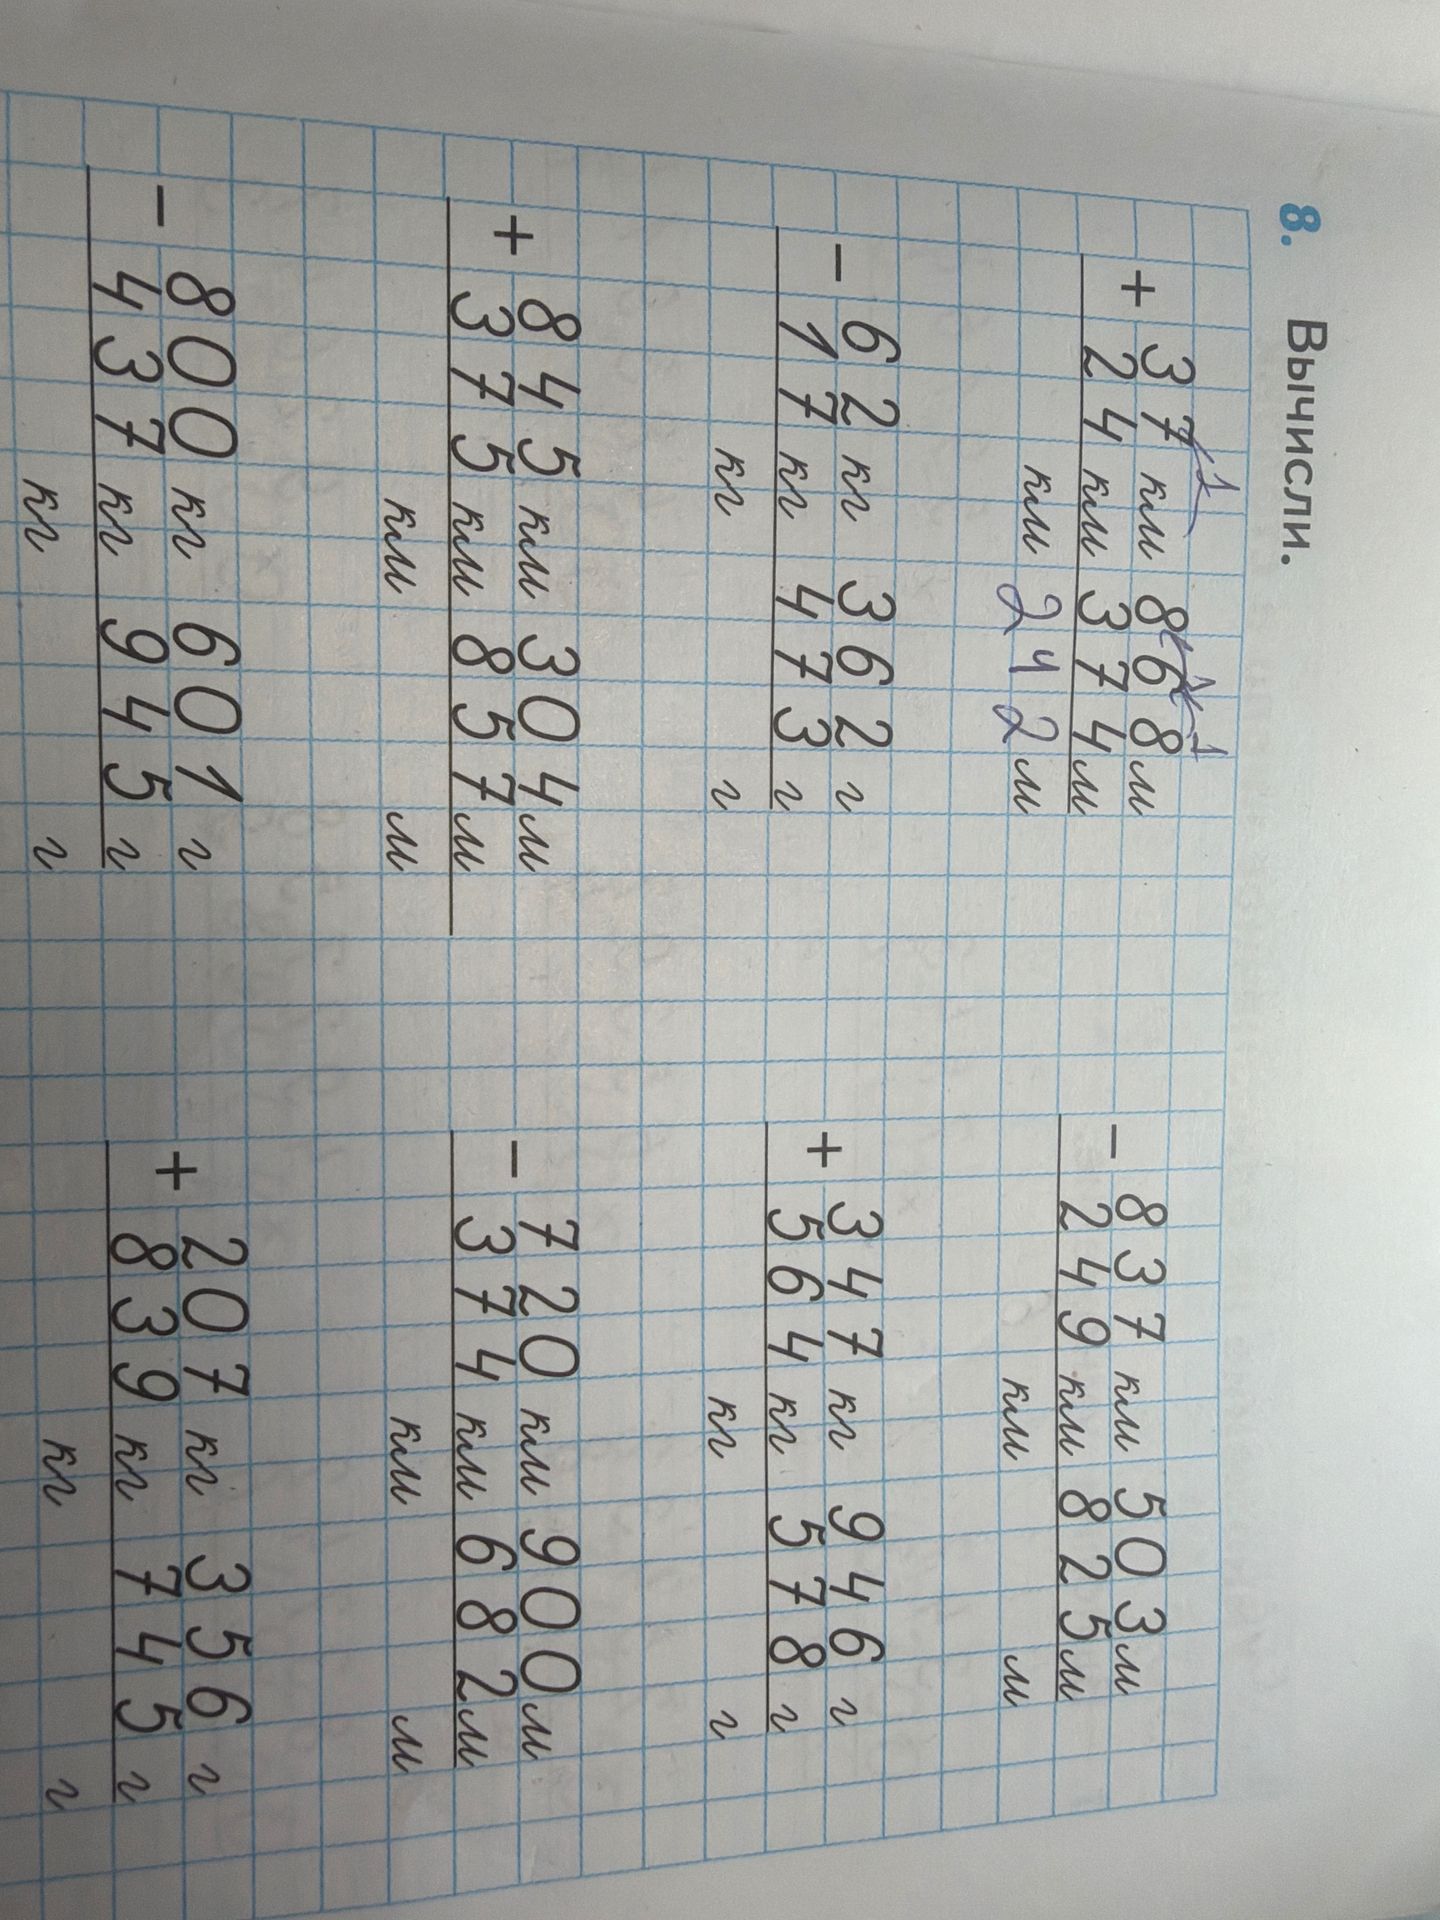 8. Вычисли.
+ 37 км 868 м
24 км 374 м
км 242 м
− 837 км 503 м
249 км 825 м
км м
− 62 кг 362 г
17 кг 473 г
кг г
+ 347 кг 946 г
564 кг 578 г
кг г
+ 845 км 304 м
375 км 857 м
км м
− 720 км 900 м
374 км 682 м
км м
− 800 кг 601 г
437 кг 945 г
кг г
+ 207 кг 356 г
839 кг 745 г
кг г